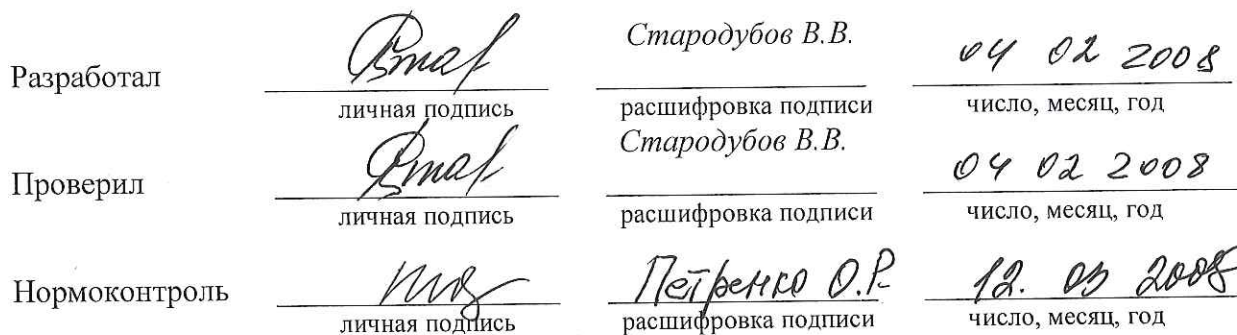 Стародубов В.В.
Разработал 04 02 2008
личная подпись расшифровка подписи число, месяц, год
Стародубов В.В.
Проверил 04 02 2008
личная подпись расшифровка подписи число, месяц, год
Нормоконтроль Петренко О.Р. 12. 03 2008
личная подпись расшифровка подписи число, месяц, год